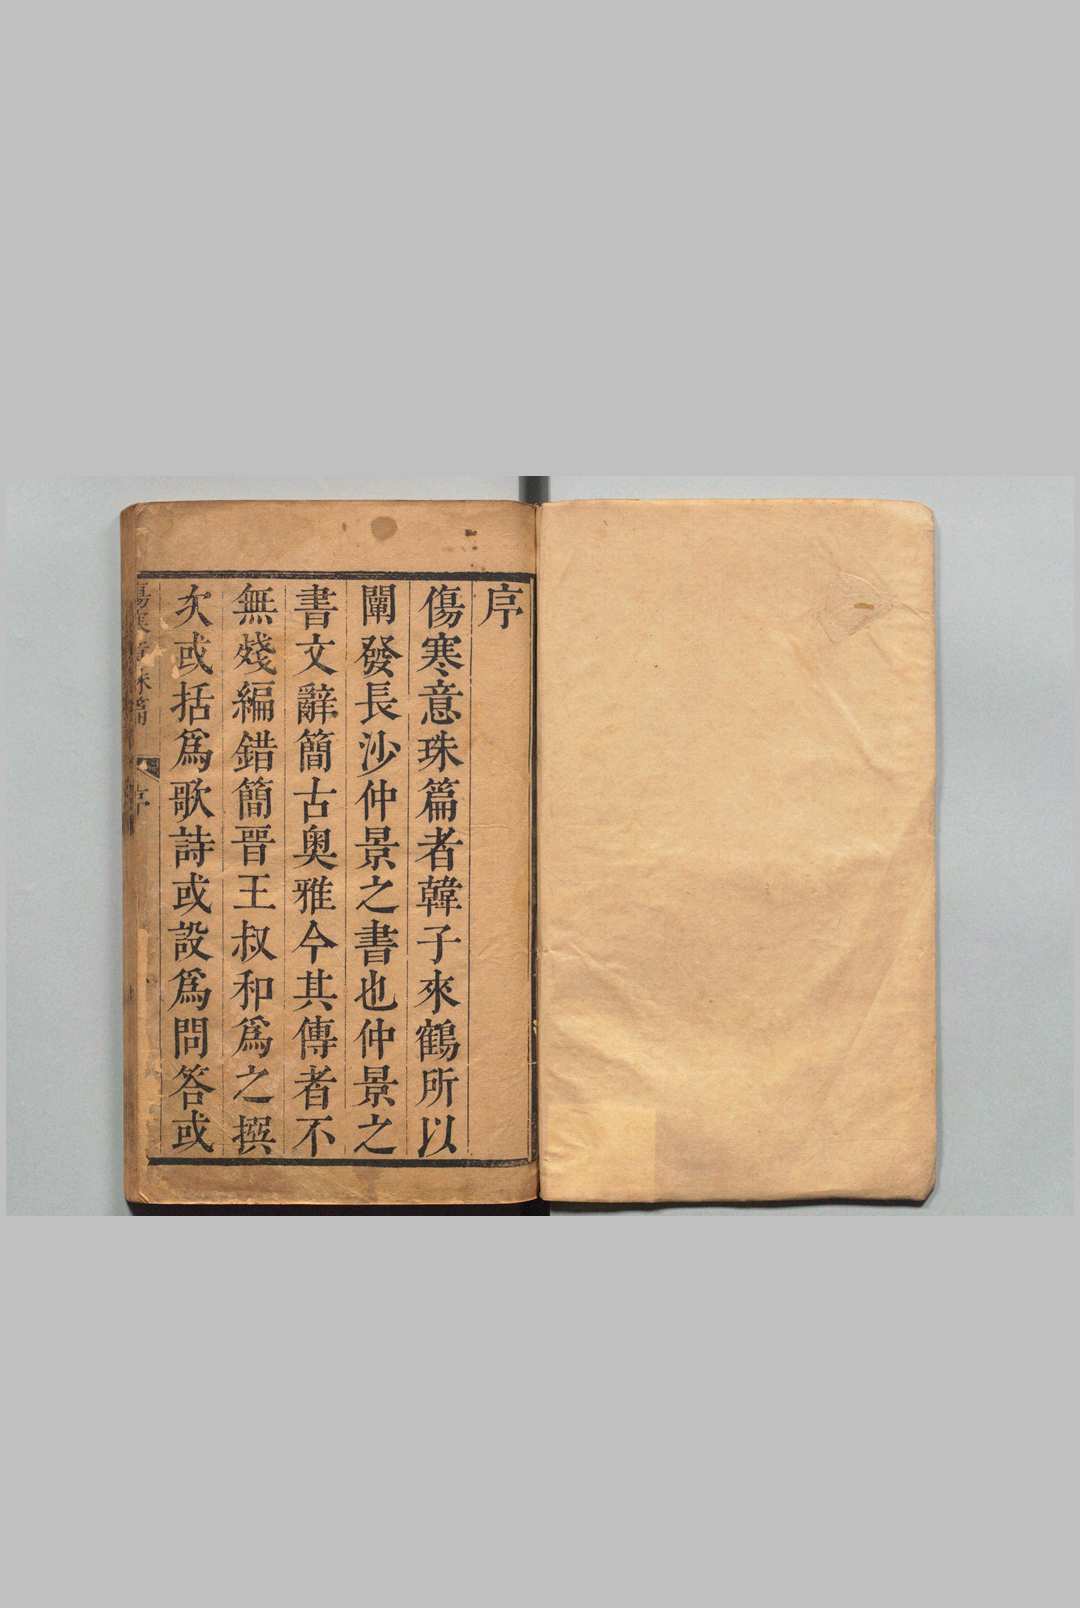 序
傷寒意珠篇者韓子來鶴所以
闡發長沙仲景之書也仲景之
書文辭簡古奥雅今其傳者不
無殘編錯簡晋王叔和爲之撰
次或括爲歌詩或設爲問答或
傷寒意珠篇
序